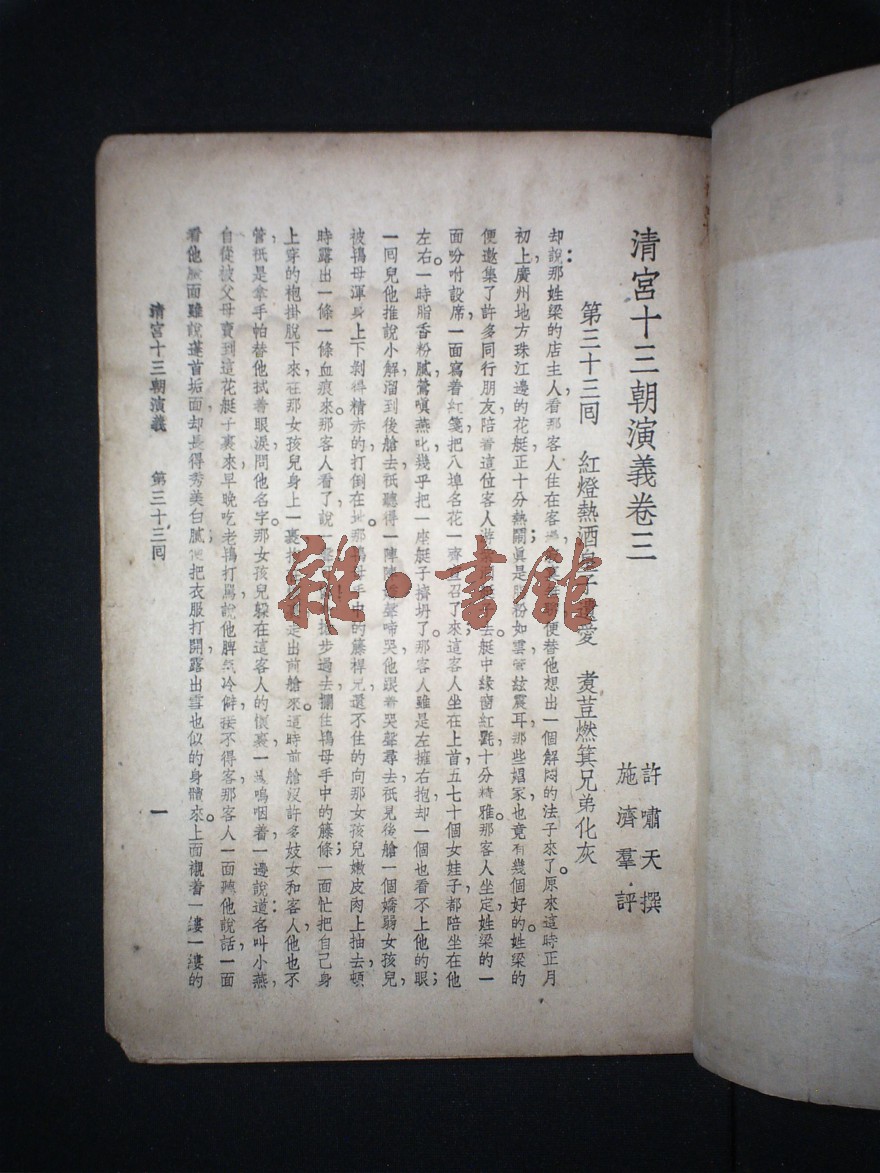 清宮十三朝演義卷三
許嘯天撰
施濟羣評
第三十三囘 紅燈熱酒皇子遺愛 煑荳燃箕兄弟化灰
却說：那姓梁的店主人，看那客人住在客便替他想出一個解悶的法子來了。原來這時正月
初上廣州地方珠江邊的花艇正十分熱鬧；眞是脂粉如雲，管絃震耳，那些娼家也竟有幾個好的。姓梁的
便邀集了許多同行朋友，陪着這位客人去。艇中綠窗紅氈，十分精雅。那客人坐定，姓梁的一
面吩咐設席，一面寫着紅箋，把八埠名花一齊召了來。這客人坐在上首，五七十個女娃子，都陪坐在他
左右。一時脂香粉膩，鶯嗔燕叱，幾乎把一座艇子擠坍了。那客人雖是左擁右抱，却一個也看不上他的眼；
一囘兒，他推說小解，溜到後艙去，祇聽得一陣陣嬌聲啼哭。他跟着哭聲尋去，祇見後艙一個嬌弱女孩兒，
被鴇母渾身上下剝得精赤的，打倒在地。那鴇母手中的籐桿兒還不住的向那女孩兒嫩皮肉上抽去，頓
時露出一條一條血痕來。那客人看了，說一聲步過去，攔住鴇母手中的籐條；一面忙把自己身
上穿的袍掛脫下來，在那女孩兒身上一裹，走出前艙來。這時前艙沒許多妓女和客人，他也不
管，祇是拿手帕替他拭着眼淚，問他名字。那女孩兒躲在這客人的懷裏，一邊嗚咽着，一邊說道：名叫小燕，
自從被父母賣到這花艇子裏來，早晚吃老鴇打罵，說他脾氣冷僻，接不得客。那客人一面聽他說話，一面
看他臉面，雖說蓬首垢面，却長得秀美白膩；他把衣服打開，露出雪也似的身體來。上面襯着一縷一縷的
清宮十三朝演義 第三十三囘 一
雜·書館